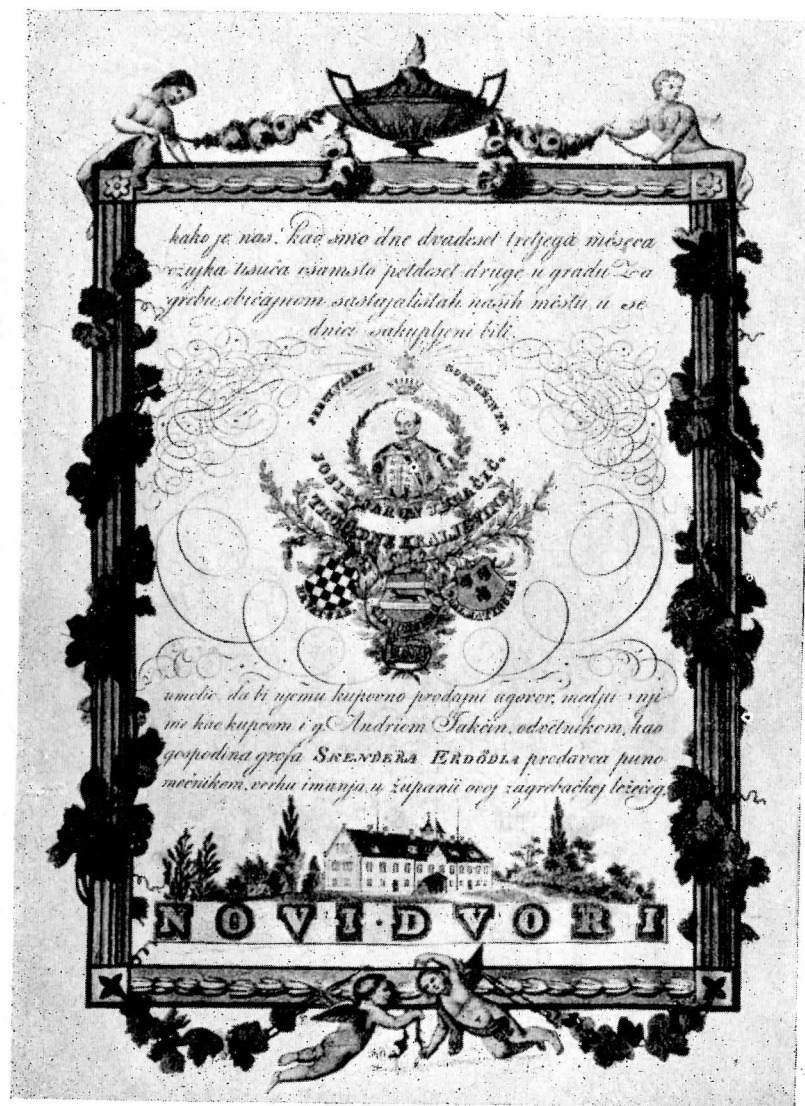 kako je nas. kao smo dne dvadeset tretjega měseca
ožujka tisuća osamsto petdeset druge u gradu Za
grebu, običajnom sastajalištah naših městu, u se
dnici sakupljeni bili,
GOSPODIN BAN
JOSIP BARON JELAČIĆ.
TROJEDNE KRALJEVINE
umolio da bi njemu kupovno prodajni ugovor, medju njı
me kao kupcem i g. Andriom Jakčin, odvětnikom, kao
gospodina grofa SKENDERA ERDÖDIA prodavca puno
moćnikom, verhu imanja, u županii ovoj zagrebačkoj ležećeg,
NOVI·DVORI